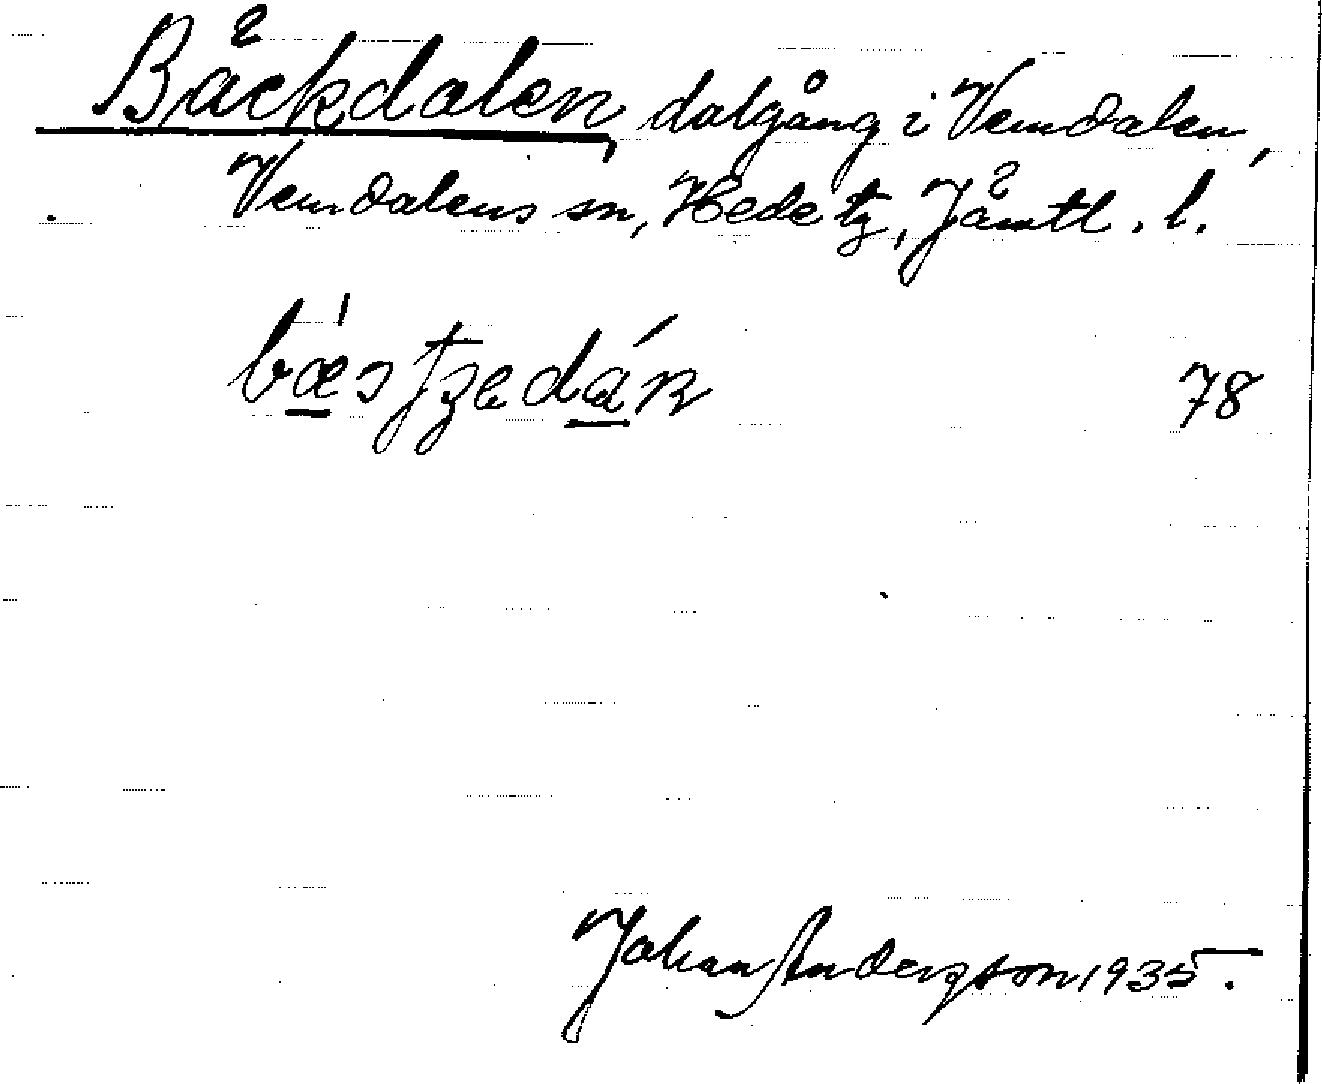 Bäckdalen, dalgång i Vemdalen,
Vemdalens sn, Hede tg, Jämtl. l.
78
Johan Andersson 1935.